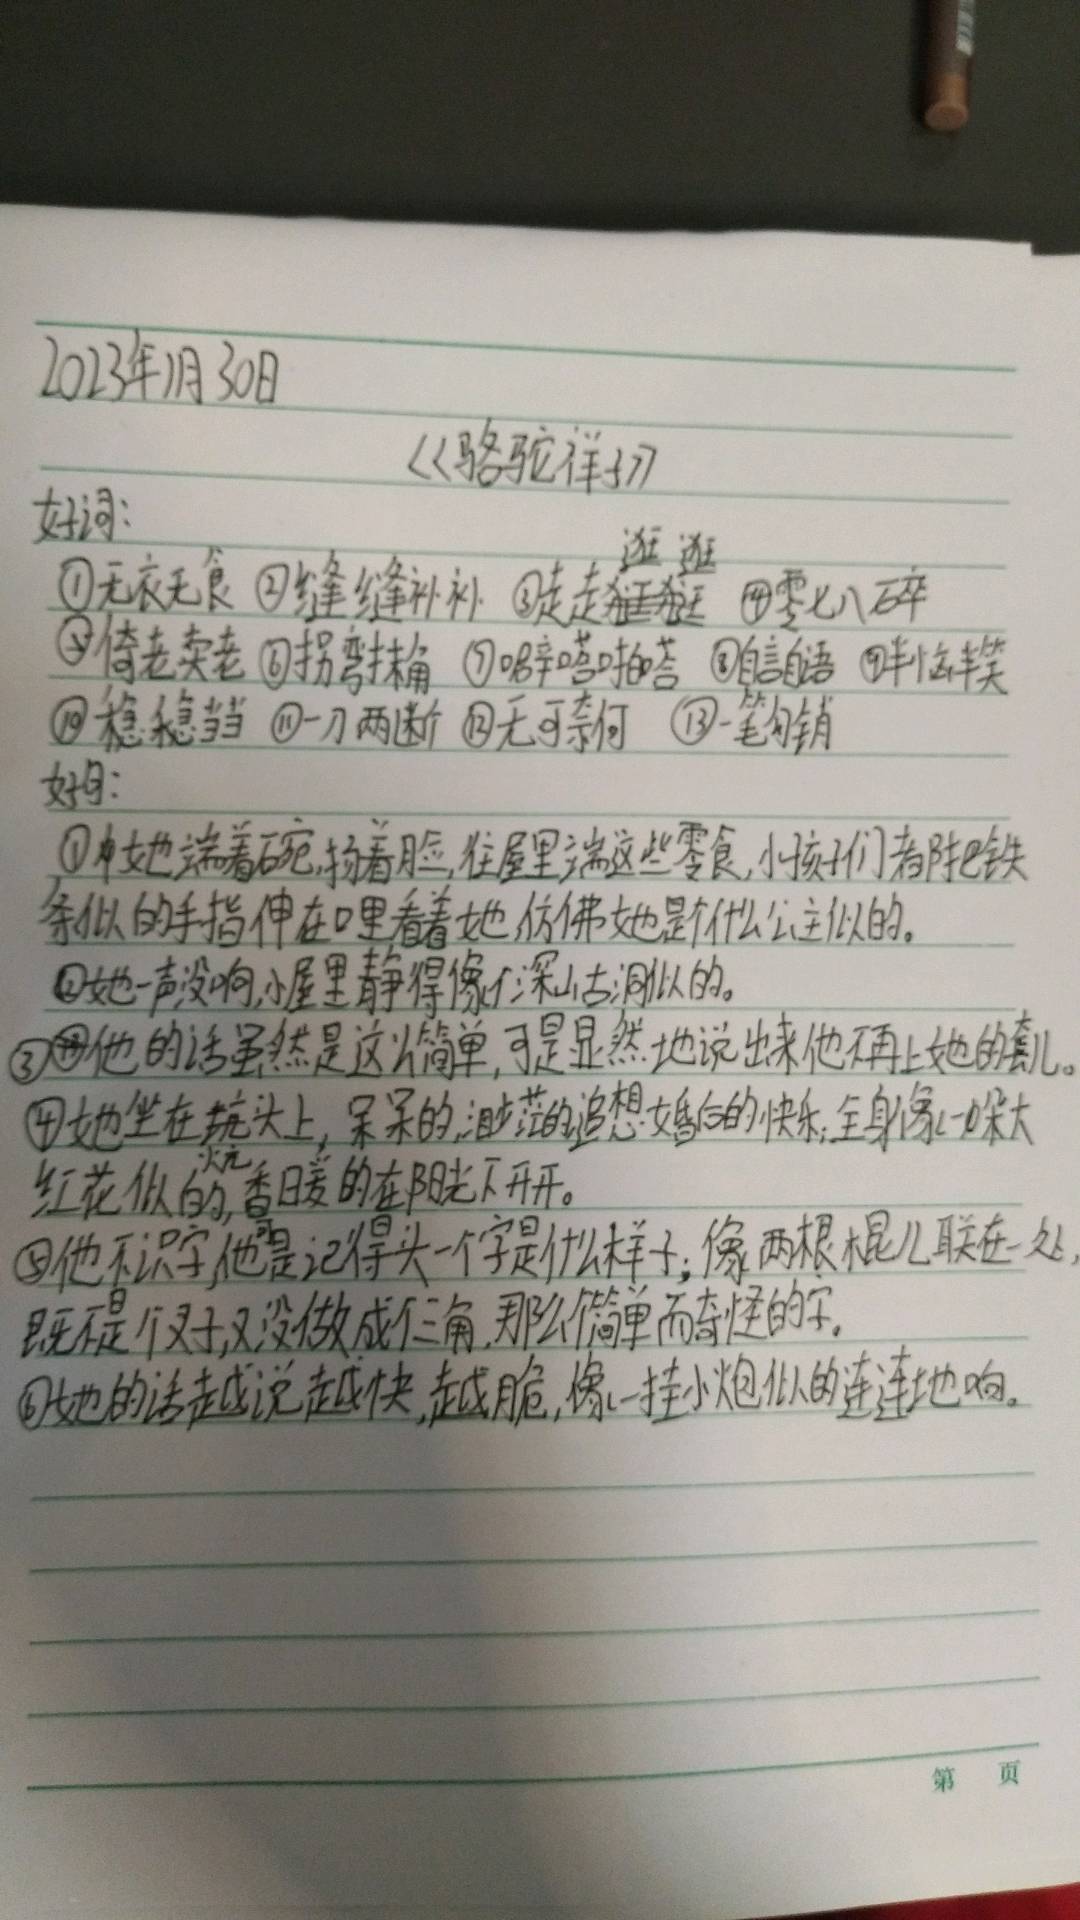 2023年1月30日
《骆驼祥子》
好词：
①无衣无食 ②缝缝补补 ③走走逛逛 ④零七八碎
⑤倚老卖老 ⑥拐弯抹角 ⑦噼嗒啪嗒 ⑧自言自语 ⑨半恼半笑
⑩稳稳当当 ⑪一刀两断 ⑫无可奈何 ⑬一笔勾销
好句：
①她端着碗，扬着脸，往屋里端这些零食，小孩子们都把铁
条似的手指伸在口里看着她，仿佛她是个什么公主似的。
②她一声没响，小屋里静得像个深山古洞似的。
③他的话虽然是这么简单，可是显然地说出来他不再上她的套儿。
④她坐在炕头上，呆呆的，渺茫的追想婚后的快乐，全身像一朵大
红花似的，香暖的在阳光下开开。
⑤他不识字，他可是记得头一个字是什么样子，像两根棍儿联在一处，
既不是个叉子，又没做成个三角，那么个简单而奇怪的字。
⑥她的话越说越快，越脆，像一挂小炮似的连连地响。
第 页